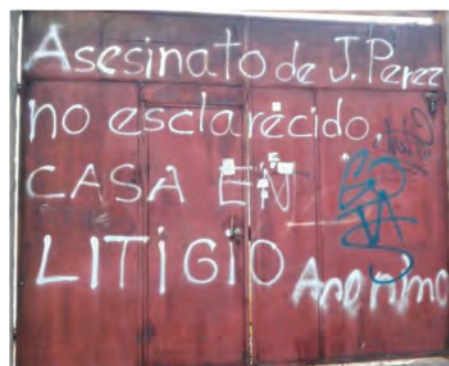 Asesinato de J. Perez
no esclarecido.
CASA EN
LITIGIO
Anonimo